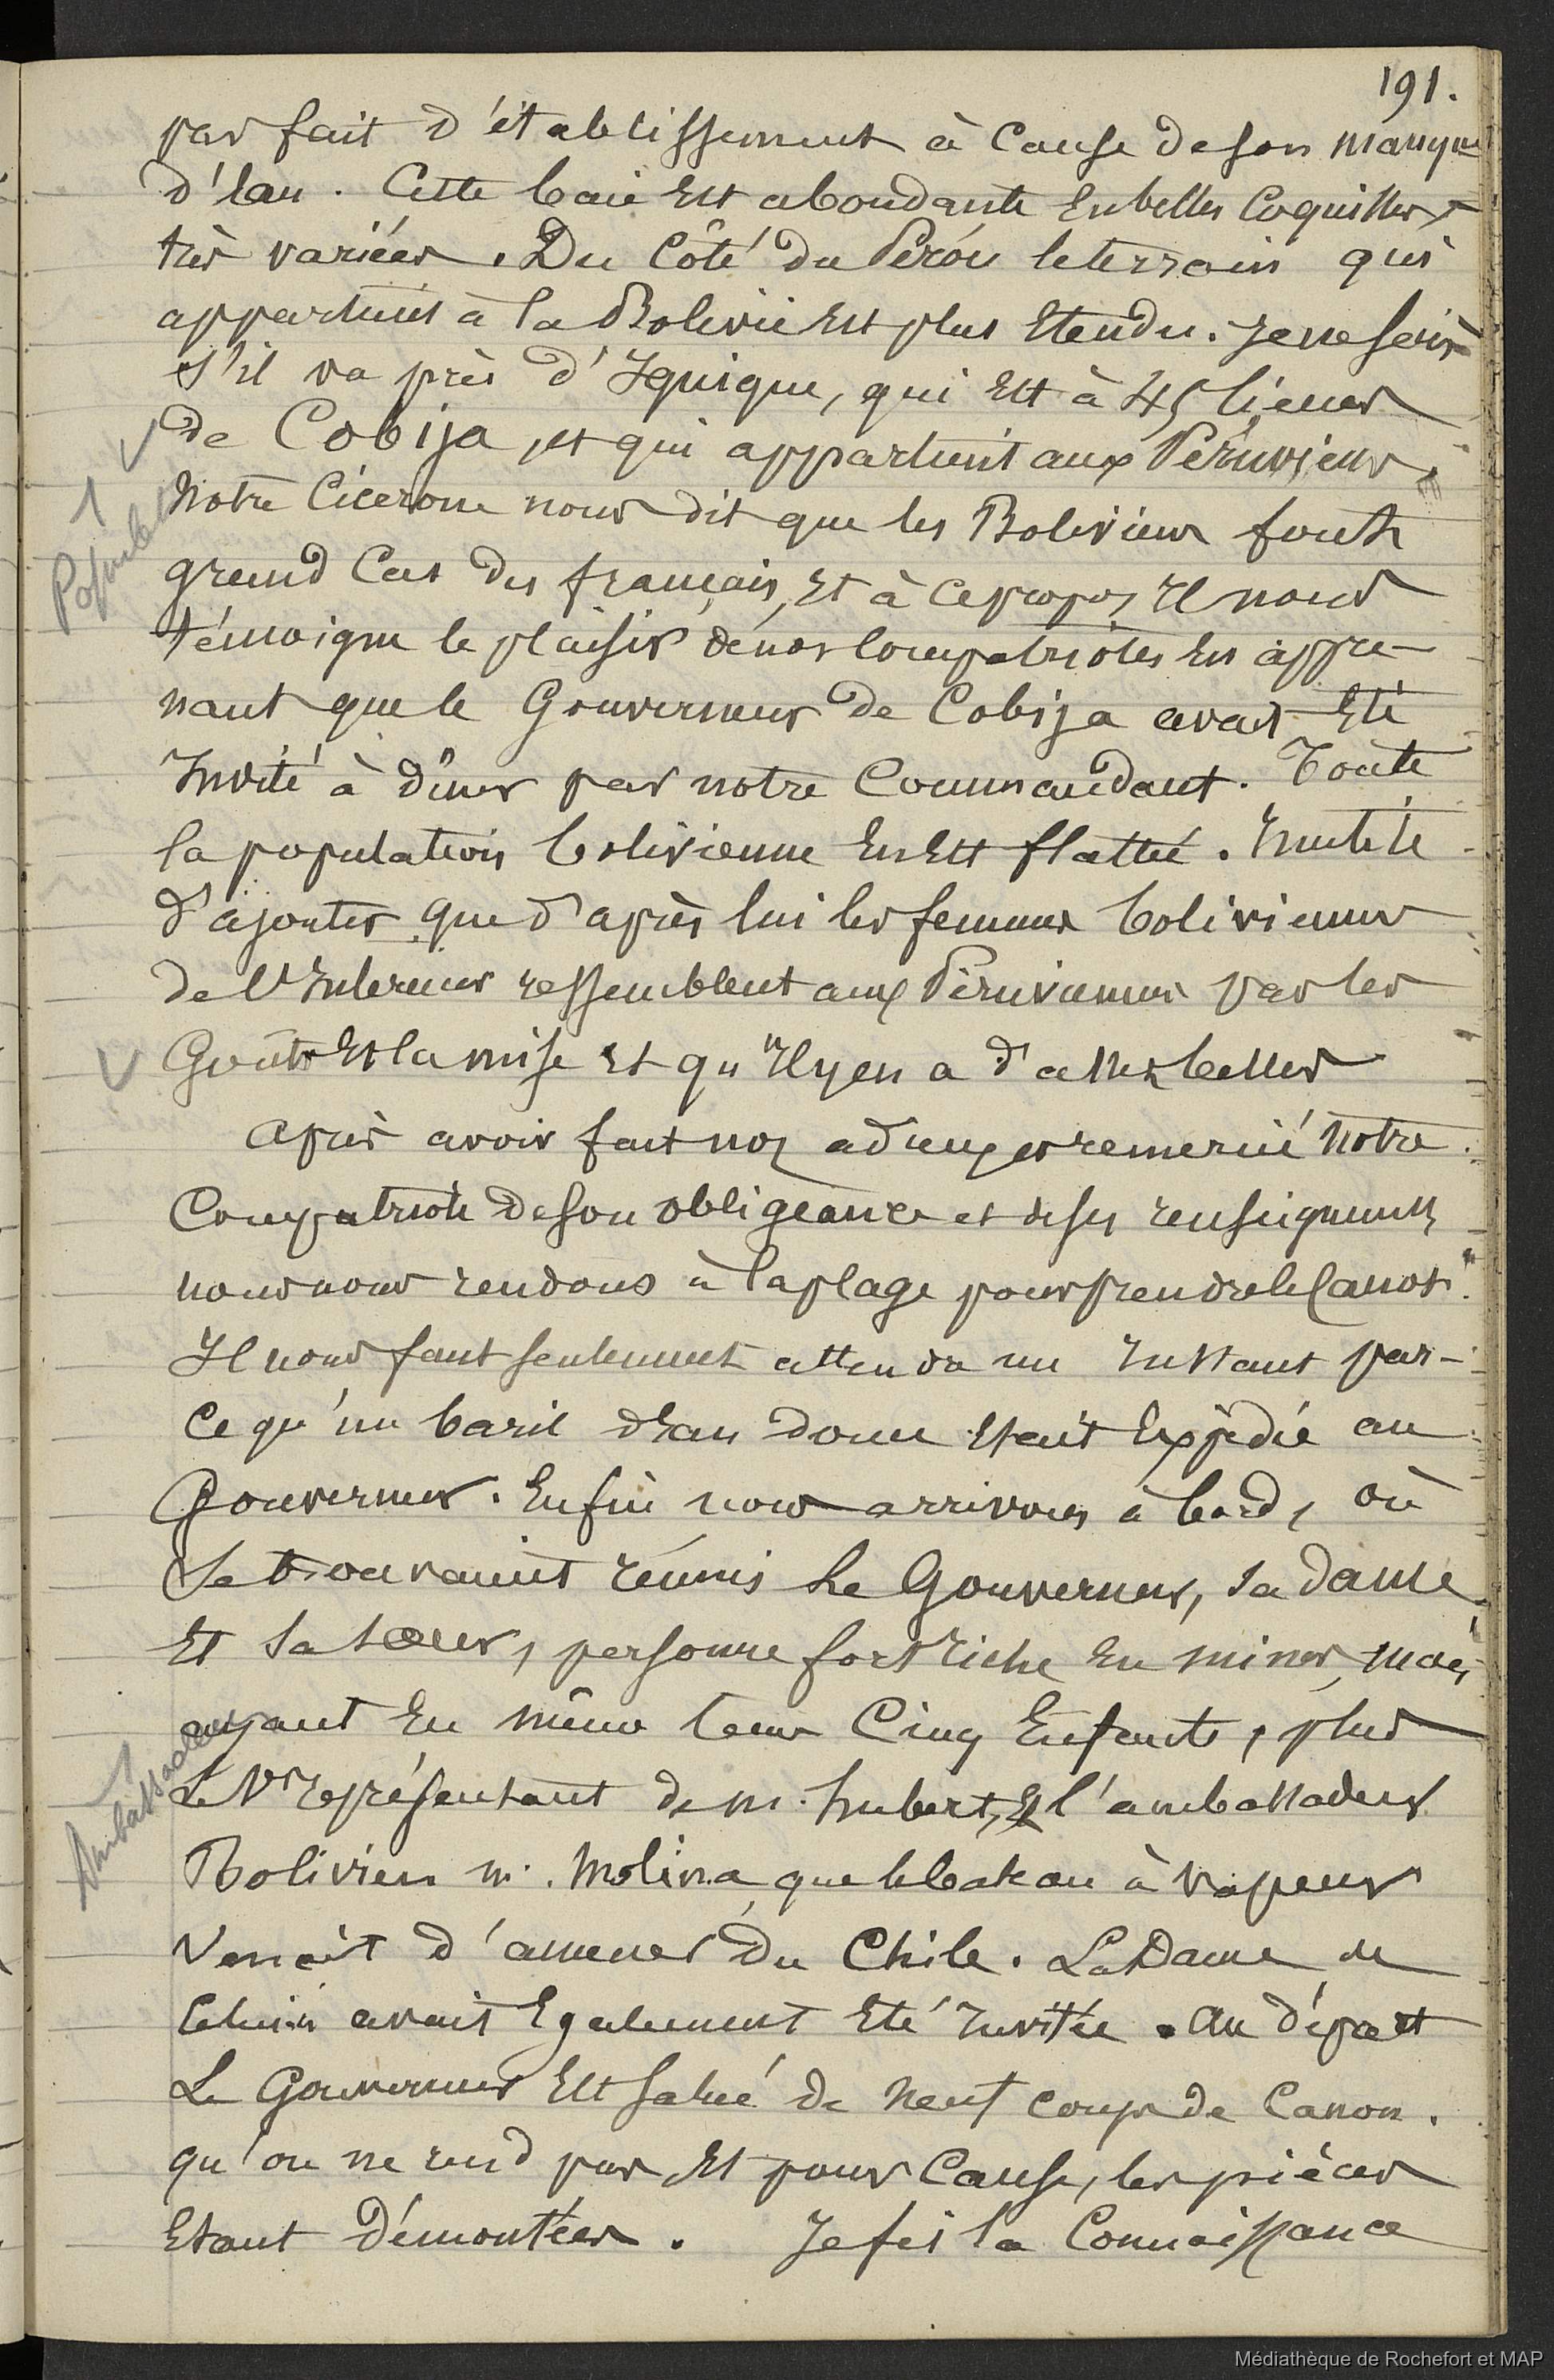 191.
pas fait d'établissement à cause de son manque
d'Eau. Cette baie Est abondante En belles Coquilles
très variées. Du Côté du Pérou le terrain qui
appartient à la Bolivie Est plus Etendu. Je ne sais
s'il va près d'Iquique, qui Est à 45 lieues
de Cobija, et qui appartient aux Péruviens,
Notre Cicerone nous dit que les Boliviens font
grand Cas des français, Et à ce propos Il nous
témoigne le plaisir de nos compatriotes En appre-
nant que le Gouverneur de Cobija avait Eté
Invité à dîner par notre Commandant. Toute
la population bolivienne En Est flattée. Inutile
d'ajouter que d'après lui les femmes boliviennes
de l'Intérieur ressemblent aux Péruviennes par les
Goûts Et la mise Et qu'Il y en a d'assez belles
après avoir fait nos adieux et remercié Notre
Compatriote de son obligeance et de ses renseignements
nous nous rendons à la plage pour prendre le Canot.
Il nous faut seulement attendre un Instant par-
ce qu'un baril d'Eau douce Etait Expédié au
Gouverneur. Enfin nous arrivons à bord, où
se trouvaient réunis Le Gouverneur, sa dame
Et sa sœur, personne fort riche En mines, mais
ayant En même temps Cinq Enfants, plus
Le représentant de M. hubert, Et l'ambassadeur
Bolivien M. Molina que le bateau à vapeur
Venait d'amener du Chile. La Dame de
Celui-ci avait Egalement Eté Invitée. Au départ
Le Gouverneur Est salué de Neuf coups de Canon.
qu'on ne rend pas Et pour Cause, les pièces
Etant démontées. Je fis la Connaissance
Ambassadeur